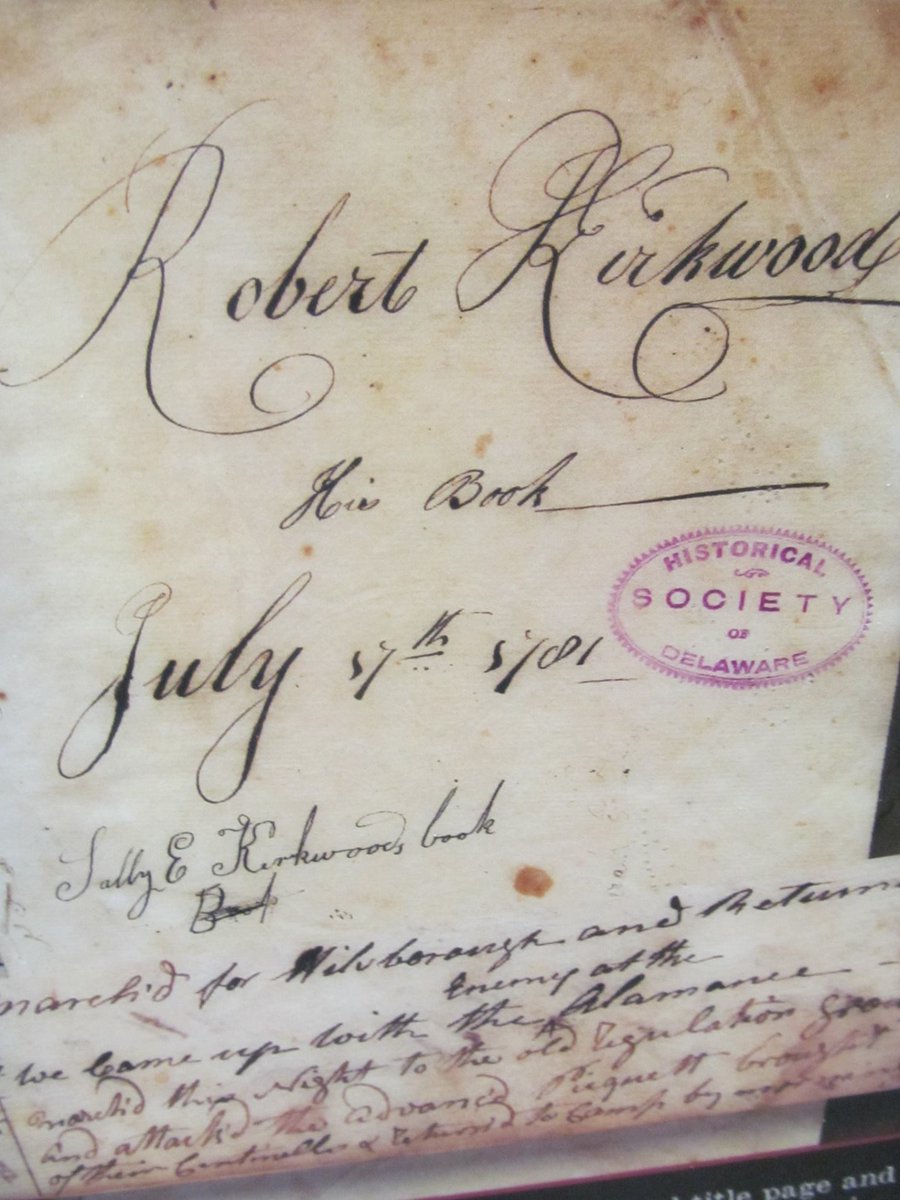 Robert Kirkwood
His Book
July 17th 1781
HISTORICAL
SOCIETY
OF
DELAWARE
Sally E Kirkwoods book
Book
march'd for Hilsborough and Return
Enemy at the
we Came up with the Alamance
march'd this Night to the old Regulation Grou
and attack'd the advanc'd Picquett brought
of their Centinells & Return'd to Camp by
title page and